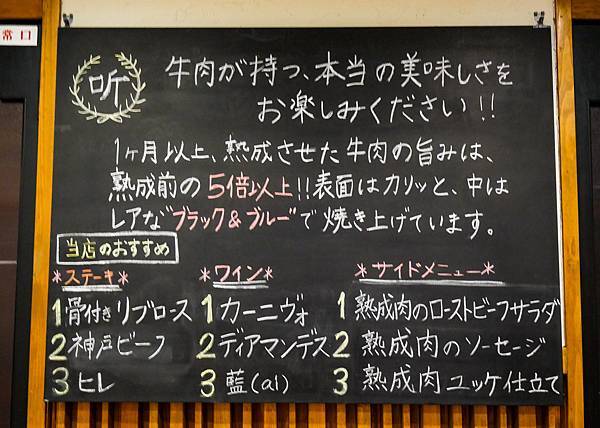 常口
听
牛肉が持つ、本当の美味しさを
お楽しみください!!
1ヶ月以上、熟成させた牛肉の旨みは、
熟成前の5倍以上!!表面はカリッと、中は
レアな"ブラック&ブルー"で焼き上げています。
当店のおすすめ
*ステーキ*
1骨付きリブロース
2神戸ビーフ
3ヒレ
*ワイン*
1カーニヴォ
2ディアマンデス
3藍(ai)
*サイドメニュー*
1熟成肉のローストビーフサラダ
2熟成肉のソーセージ
3熟成肉ユッケ仕立て